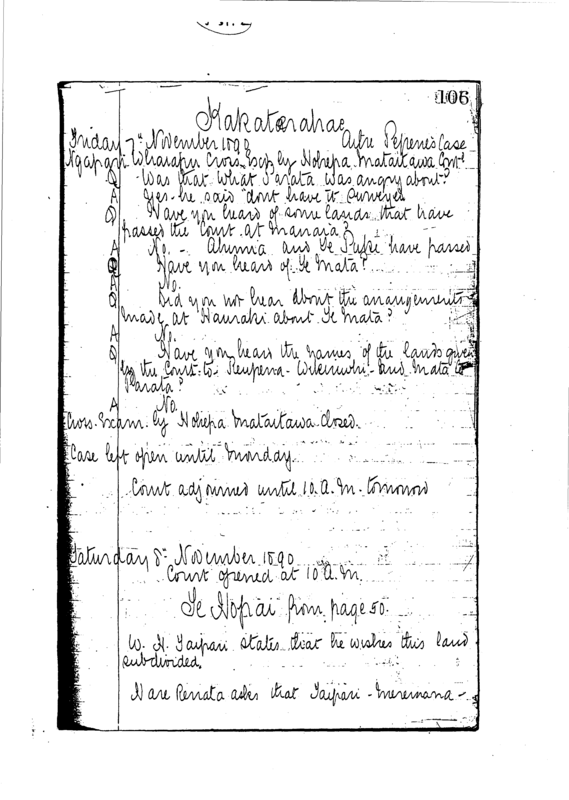 106
Kakatarahae
Friday 7th November 1890 Aihe Pepene's Case
Ngapari Wharapu Cross Exd by Nohepa Mataitawa Contd
Q Was that what Parata was angry about?
A Yes. he said "dont have it surveyed
Q Have you heard of some lands that have
passed the Court at Manaia?
A No. - Ahumia and Te Puke have passed
Q Have you heard of Te Mata?
A No.
Q Did you not hear about the arrangements
made at Hauraki about Te Mata?
A No.
Q Have you heard the names of the lands given
by the Court to Reupena - and Mata
Parata?
A No.
Cross. Exam. by Nohepa Mataitawa Closed.
Case left open until Monday.
Court adjourned until 10. A. M. tomorrow
Saturday 8th November 1890
Court opened at 10 A.M.
Te Hopai from page 50.
W. H. Taipari states that he wishes this land
subdivided.
Hare Renata asks that Taipari - Meremana -